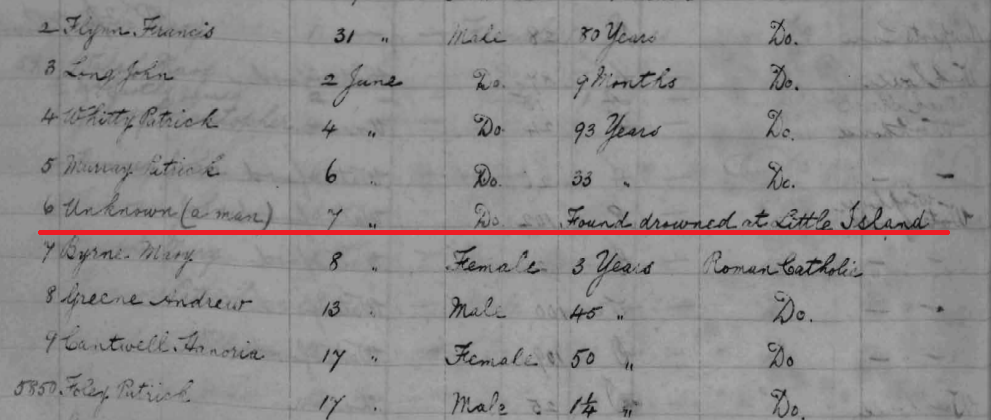 2 Flynn Francis 31 " Male 80 Years Do.
3 Long John 2 June Do. 9 Months Do.
4 Whitty Patrick 4 " Do 93 Years Do.
5 Murray Patrick 6 " Do. 33 " Do. -
6 Unknown (a man) 7 " Do Found drowned at Little Island
7 Byrne Mary 8 " Female 3 Years Roman Catholic
8 Greene Andrew 13 " Male 45 " Do.
9 Cantwell Honoria 17 " Female 50 " Do
5850 Foley Patrick 17 " Male 1¼ " Do.